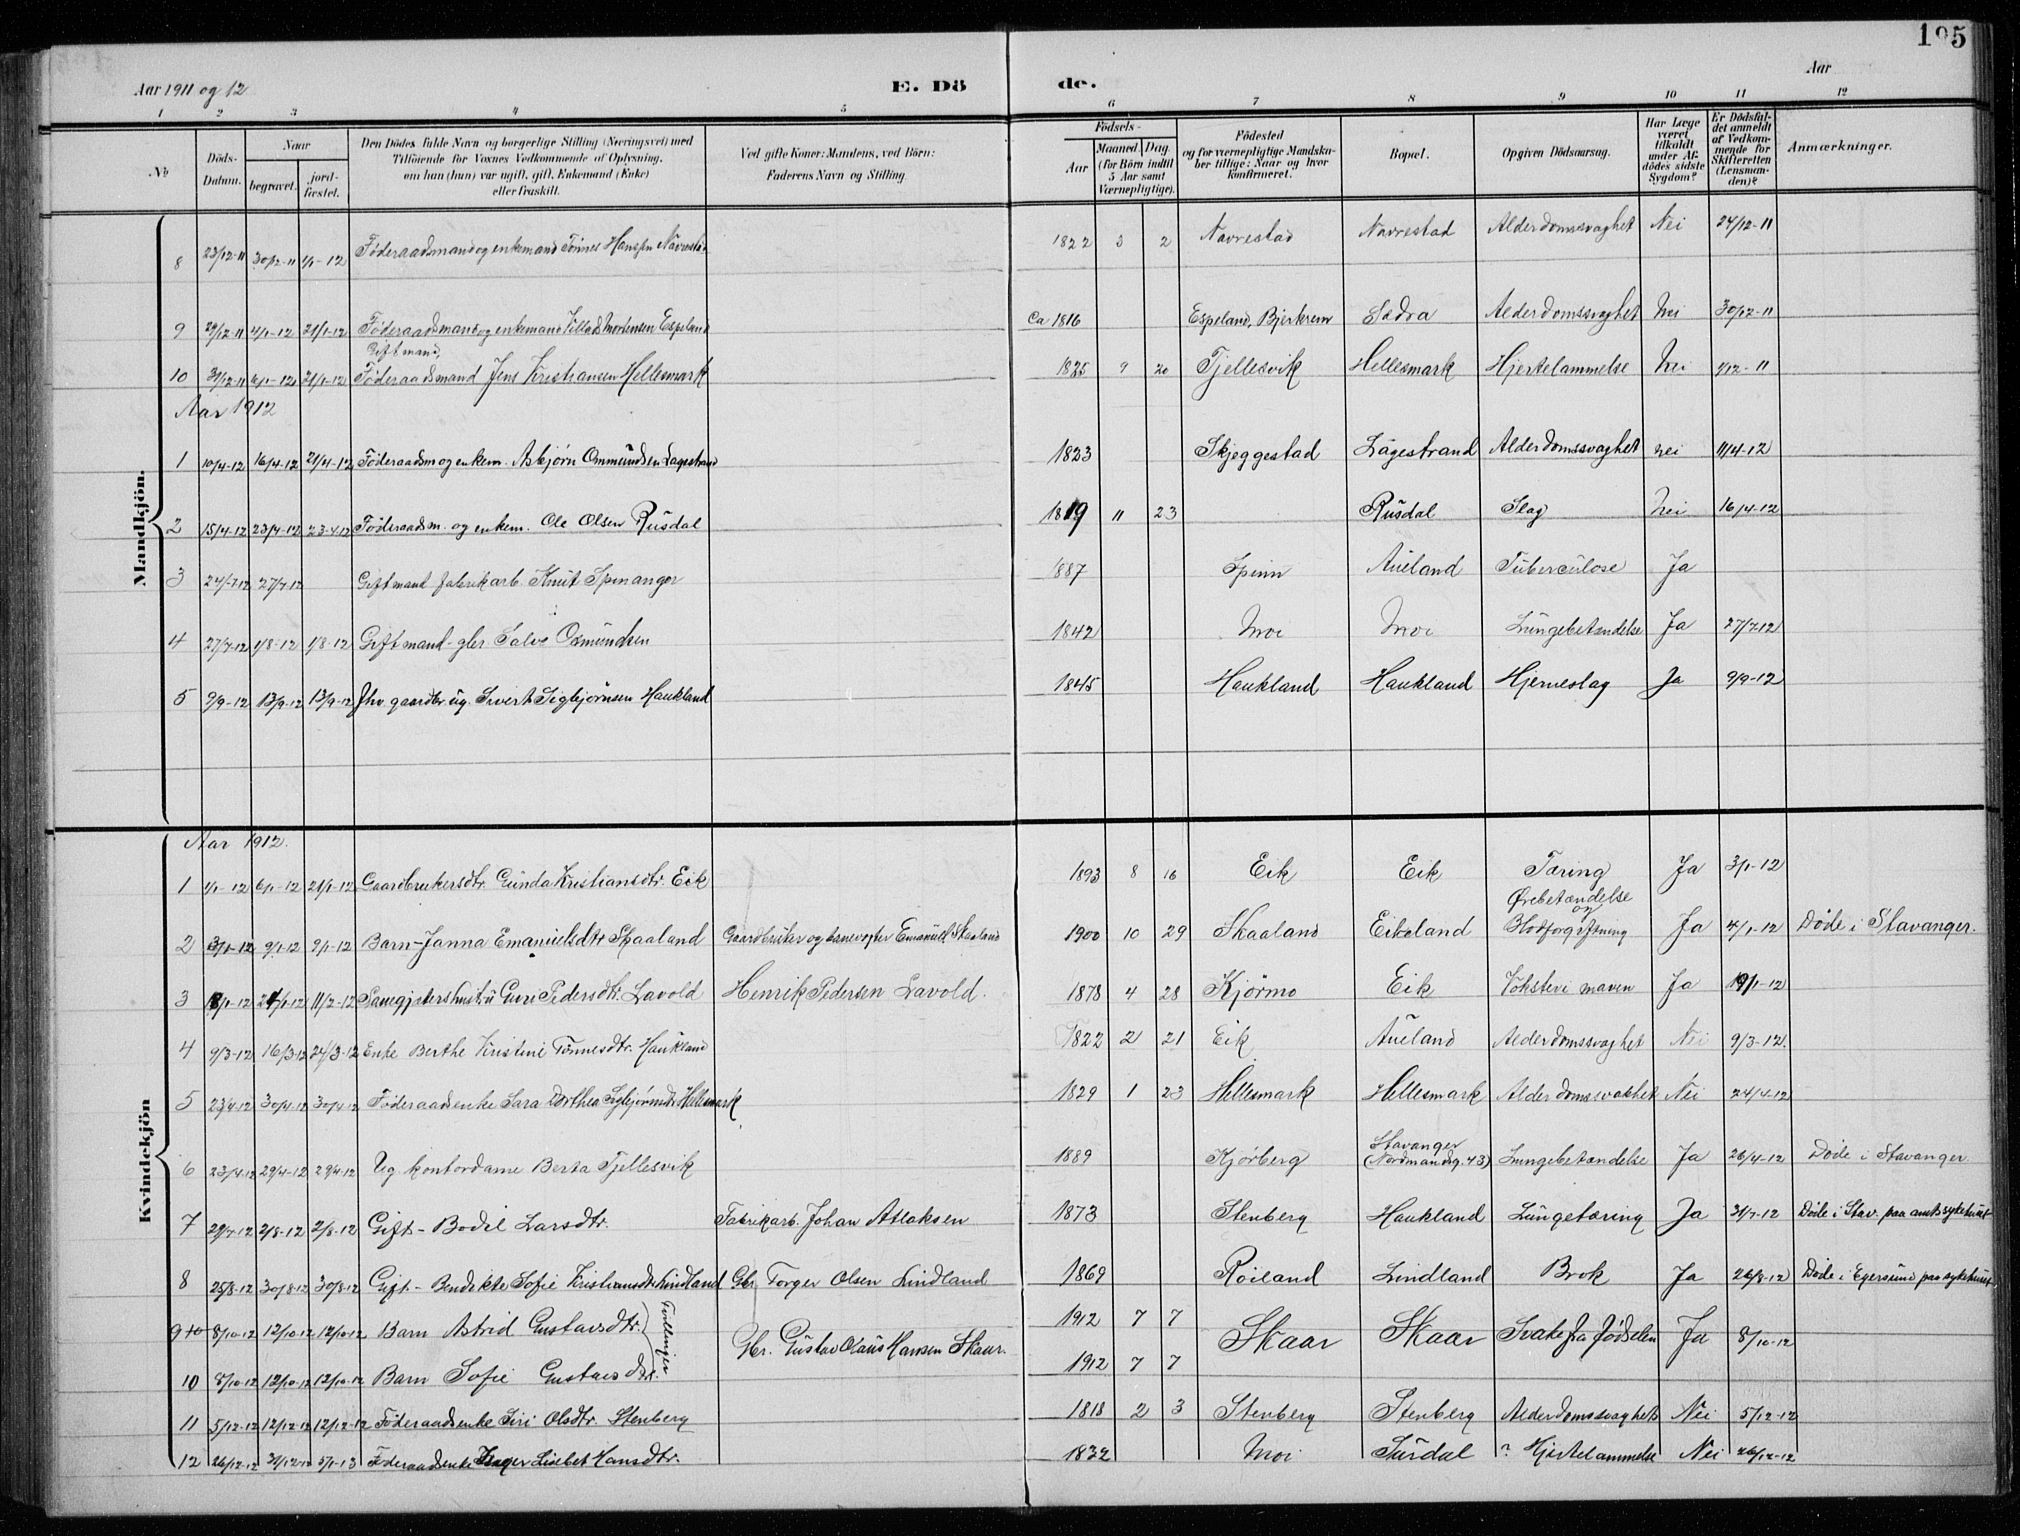 195
Aar 1911 og 12
E. Dö
de.
Aar
1 2 3 4 5 6 7 8 9 10 11 12
No
Döds-Datum.
Naar
begravet.
jord-fæstet.
Den Dödes fulde Navn og borgerlige Stilling (Næringsvei) med
Tilföiende for Voxnes Vedkommende af Oplysning,
om han (hun) var ugift, gift, Enkemand (Enke)
eller fraskilt.
Ved gifte Koner: Mandens, ved Börn:
Faderens Navn og Stilling.
Födsels-
Aar
Maaned. Dag.
(for Börn indtil
5 Aar samt
Værnepligtige).
Födested
og for værnepligtige Mandska-
ber tillige: Naar og hvor
konfirmeret.
Bopæl.
Opgiven Dödsaarsag.
Har Læge
været
tilkaldt
under Af-
dödes sidste
Sygdom?
Er Dödsfal-
det anmeldt
af Vedkom-
mende for
Skifteretten
(Lensman-
den)?
Anmærkninger.
Mandkjön.
8 23/12-11 30/12-11 1/1-12 Føderaadsmand og enkemand Tönnes Hansen Navrestad 1822 3 2 Navrestad Navrestad Alderdomssvaghet Nei 24/12-11
9 29/12-11 4/1-12 21/1-12 Føderaadsmand og enkemand Mortensen Espeland Ca 1816 Espeland, Bjerkrem Sædra Alderdomssvaghet Nei 30/12-11
Gift mand,
10 31/12-11 6/1-12 21/1-12 Føderaadsmand Jens Kristiansen Hellesmark 1825 9 20 Tjellesvik Hellesmark Hjertelammelse Nei
Aar 1912
1 10/4-12 16/4-12 21/4-12 Føderaadsm og enkem. Asbjørn Ommundsen Lagestrand 1823 Skjeggestad Lagestrand Alderdomssvaghet nei 11/4-12
2 15/4-12 23/4-12 23-4-12 Føderaadsm. og enkem. Ole Olsen Rusdal 1819 11 23 Rusdal Slag Nei 16/4-12
3 24/7-12 27/7-12 Gift mand fabrikarb. Knut Spinanger 1887 Spinn Aueland Tuberculose Ja
4 27/7-12 1/8-12 1/8-12 Gift mand - gbr Salve Osmundsen 1842 Moi Moi Lungebetændelse Ja 27/7-12
5 9/9-12 13/9-12 13/9-12 Fhv. gaardbr. ug. Sivert Sigbjørnsen Haukland 1845 Haukland Haukland Hjerneslag Ja 9/9-12
Kvindekjön
Aar 1912.
1 1/1-12 6/1-12 21/1-12 Gaardbrukersdtr. Gunda Kristiansdtr. Eik 1893 8 16 Eik Eik Tæring Ja 3/1-12
2 3/1-12 9/1-12 9/1-12 Barn - Janna Emanuelsdtr Skaaland Gaardbruker og banevogter Emanuel Skaaland 1900 10 29 Skaaland Eikeland Ørebetændelse og Blodforgiftning Ja 4/1-12 Døde i Stavanger.
3 18/1-12 24/1-12 11/2-12 Guri Pedersdtr. Lavold Henrik Pedersen Lavold. 1878 4 28 Kjörmo Eik Vökster i maven Ja 19/1-12
4 9/3-12 16/3-12 24/3-12 Enke Berthe Kristine Tönnesdtr. Haukland 1822 2 21 Eik Aueland Alderdomssvaghet Nei 9/3-12.
5 23/4-12 30/4-12 30/4-12 Føderaadsenke Sara Dorthea Sigbjørnsdtr Hellesmark 1829 1 23 Hellesmark Hellesmark Alderdomssvakhet Nei 24/4-12
6 23/4-12 29/4-12 29/4-12 Ug kontordame Berta Tjellesvik 1889 Kjörberg Stavanger (Nordmandsg. 43) Lungebetændelse Ja 26/4-12 Døde i Stavanger.
7 29/7-12 2/8-12 2/8-12 Gift - Bodil Larsdtr. Fabrikarb. Johan Atlaksen 1873 Stenberg Haukland Lungetæring Ja 31/7-12 Døde i Stav. paa amtssykehuset
8 25/8-12 30/8-12 30/8-12 Gift - Bendikte Sofie Kristiansdtr Lindland Gbr Torger Olsen Lindland 1869 Röiland Lindland Brok Ja 26/8-12 Døde i Egersund paa sykehuset
9 8/10-12 12/10-12 12/10-12 Barn Astrid Gustavsdtr. Tvillinger Gbr. Gustav Olaus Hansen Skaar. 1912 7 7 Skaar Skaar Svake fra fødselen Ja 8/10-12
10 8/10-12 12/10-12 12/10-12 Barn Sofie Gustavsdtr. 1912 7 7
11 5/12-12 12/12-12 12/12-12 Føderaadsenke Siri Olsdtr. Stenberg 1818 2 3 Stenberg Stenberg Alderdomssvaghet Nei 5/12-12
12 26/12-12 31/12-12 5/1-13 Føderaadsenke Inger Lisebet Hansdtr. 1832 Moi Surdal ? Hjertelammelse Nei 26/12-12